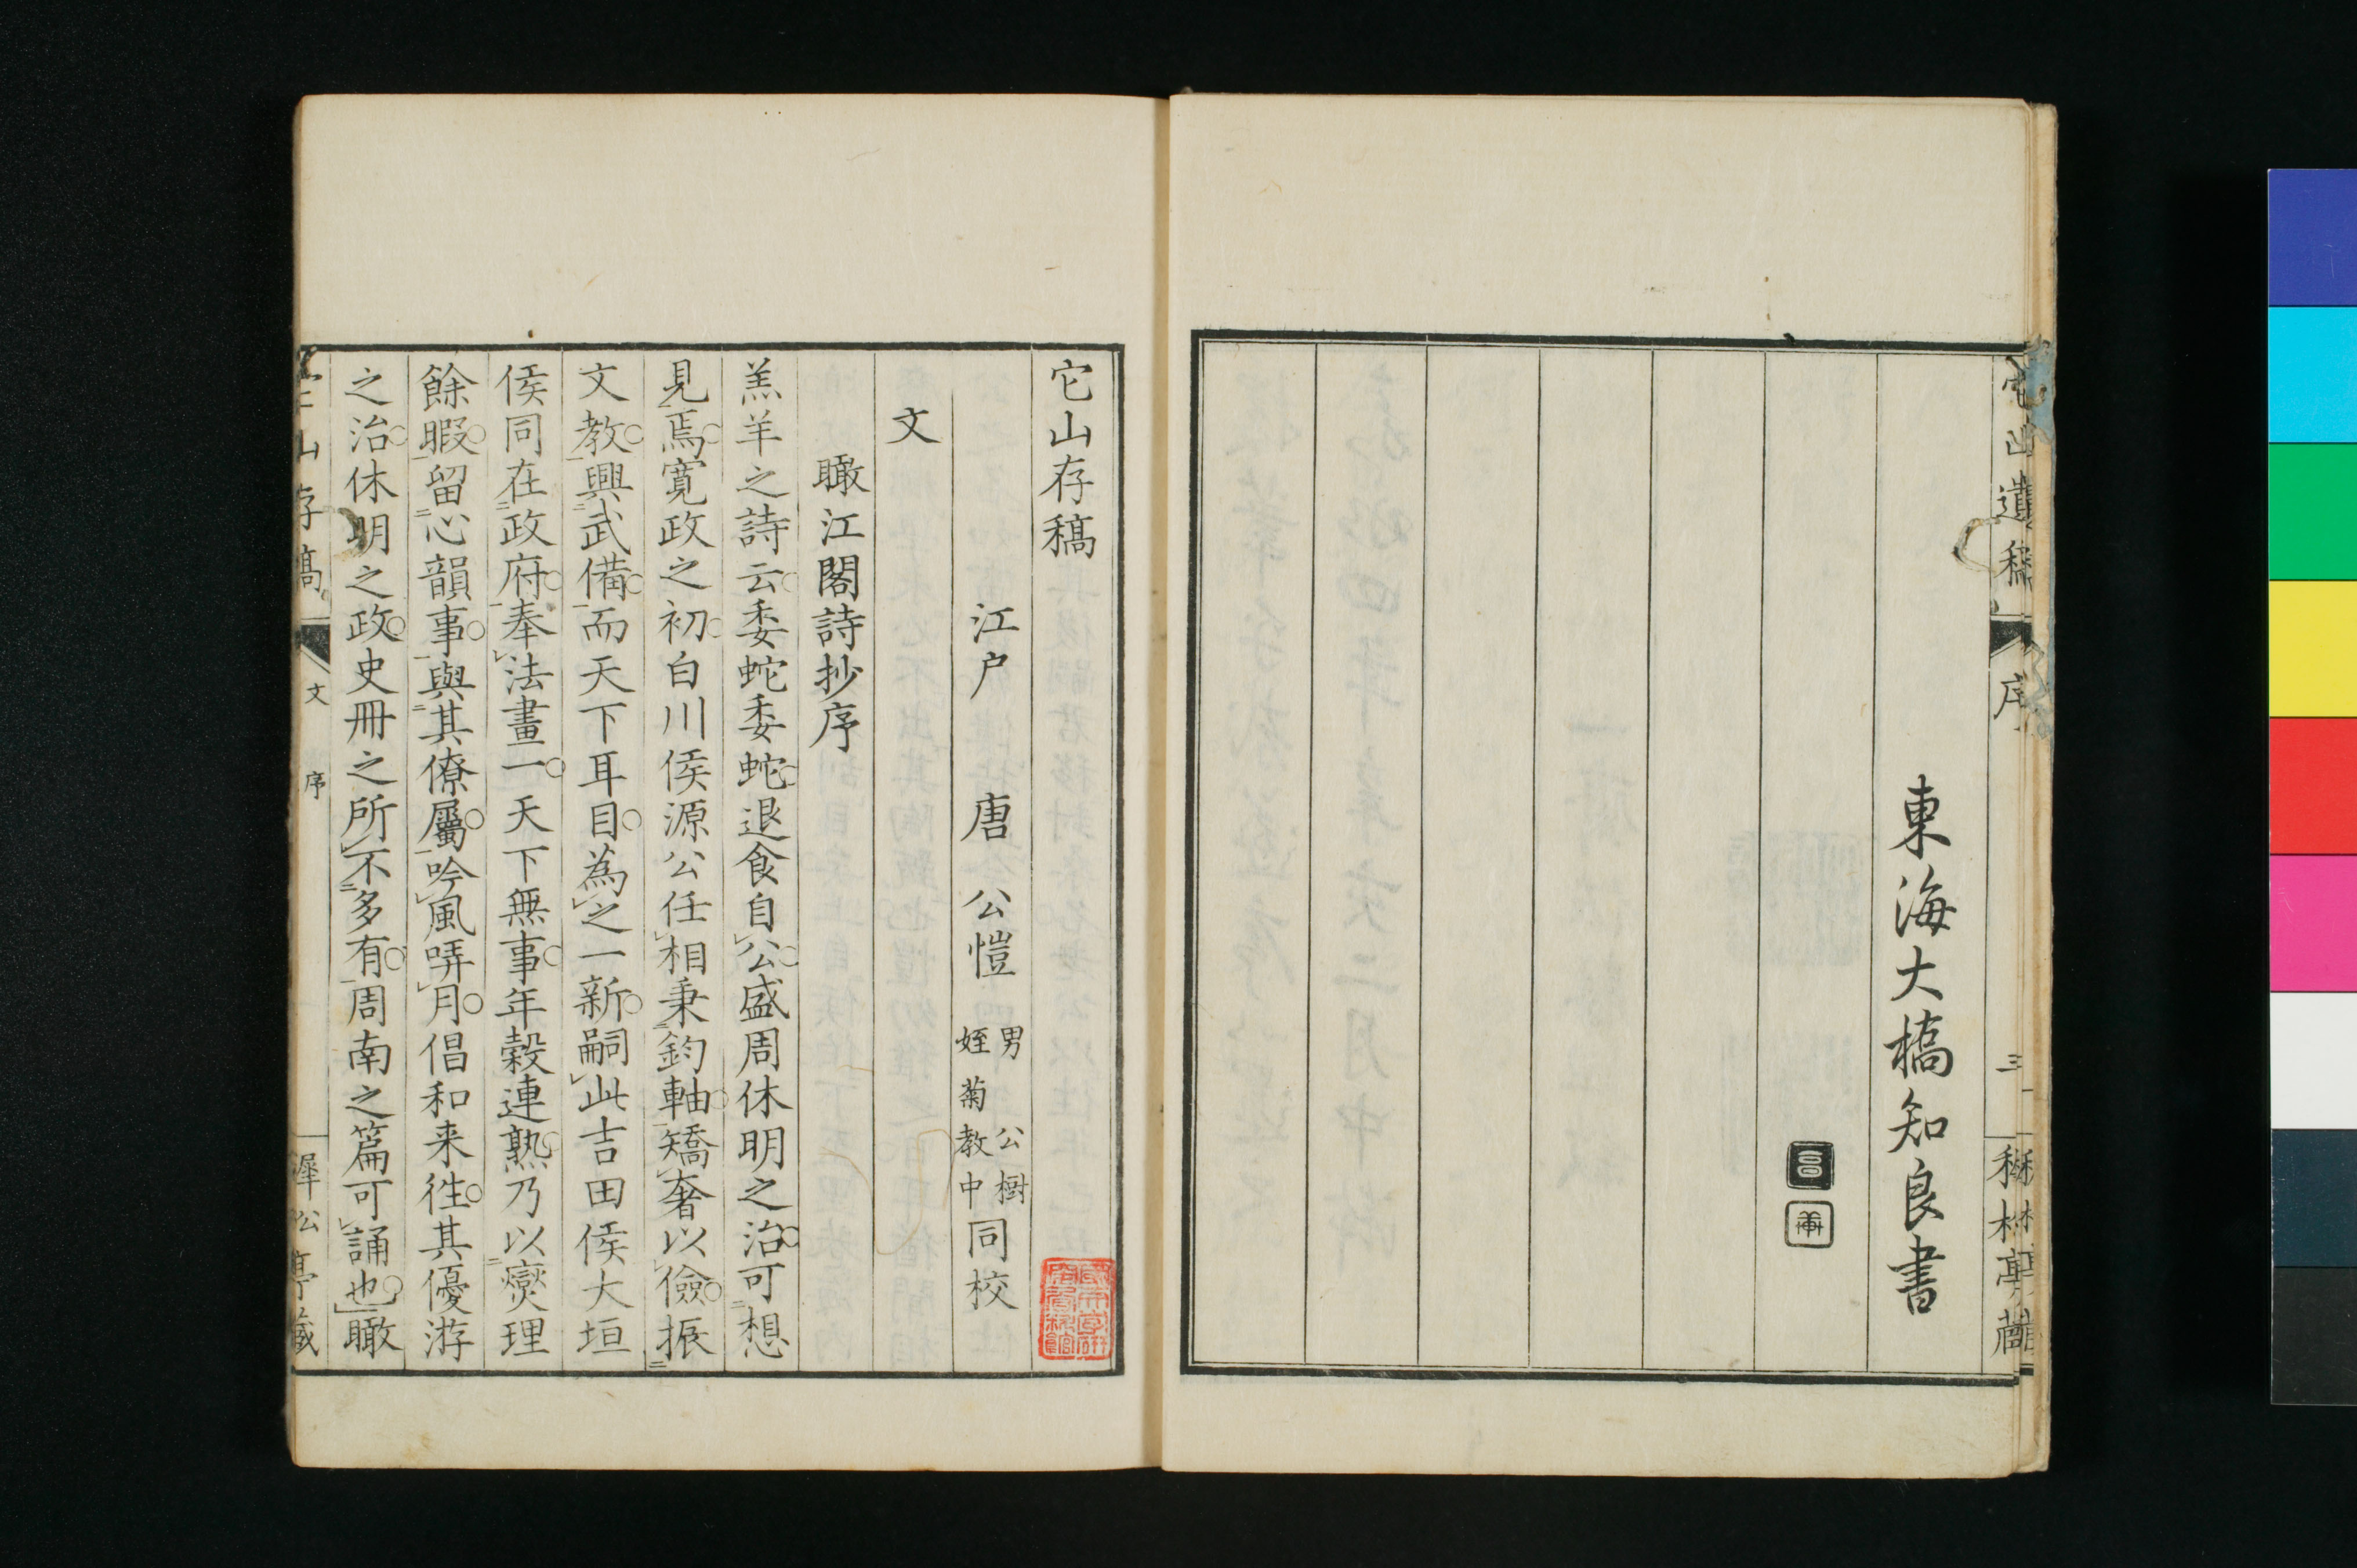 它山遺稿
序
三
東海大橋知良書
它山存稿
江戸 唐 公愷 男 公樹 姪 菊教中 同校
文
瞰江閣詩抄序
羔羊之詩云委蛇委蛇退食自公盛周休明之治可想
見焉寛政之初白川侯源公任相秉鈞軸矯奢以儉振
文教興武備而天下耳目為之一新嗣此吉田侯大垣
侯同在政府奉法畫一天下無事年穀連熟乃以爕理
餘暇留心韻事與其僚屬吟風哢月倡和来徃其優游
之治休明之政史冊之所不多有周南之篇可誦也瞰
山存稿
文
序